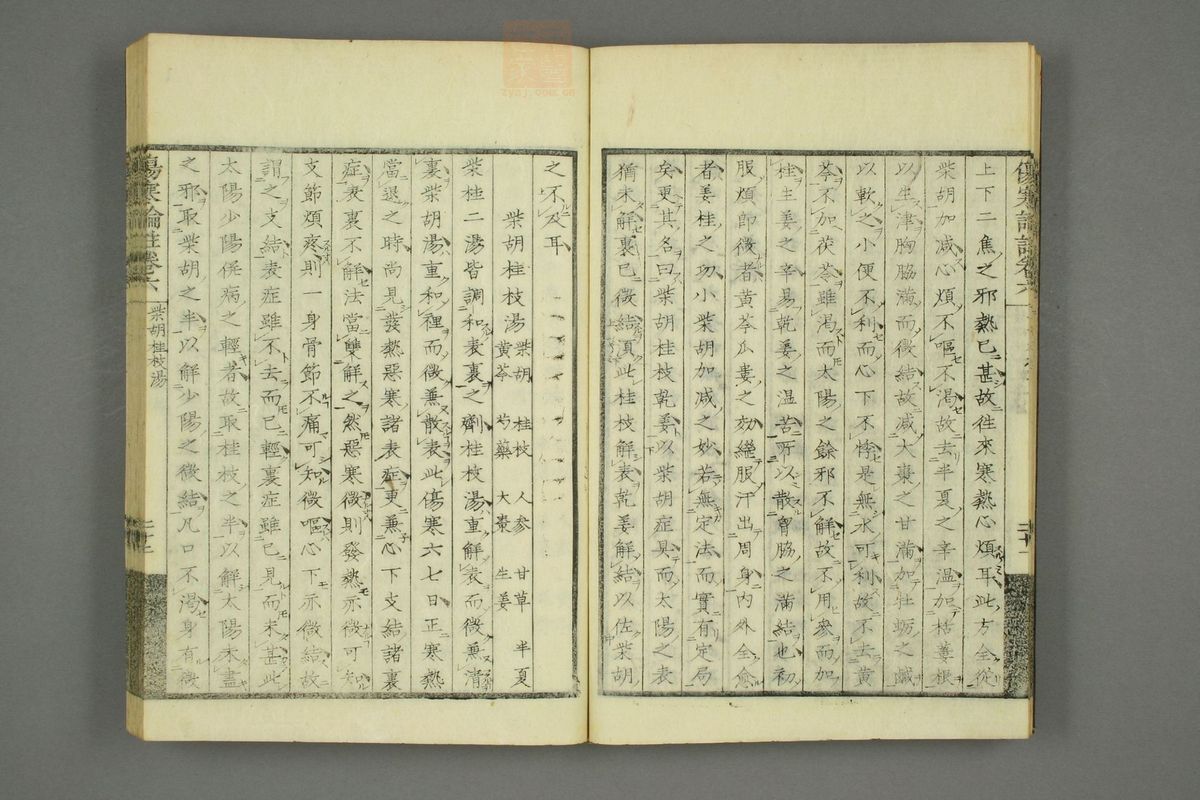 上下二焦之邪熱已甚故往來寒熱心煩耳此方全從
柴胡加減心煩不嘔不渴故去半夏之辛溫加栝蔞根
以生津胸脇滿而微結故減大棗之甘滿加牡蛎之鹹
以軟之小便不利而心下不悸是無水可利故不去黃
芩不加茯苓雖渴而太陽之餘邪不解故不用參而加
桂生姜之辛易乾姜之温苦所以散胷脇之滿結也初
服煩即微者黃芩瓜蔞之効繼服汗出周身內外全愈
者姜桂之功小柴胡加减之妙若無定法而實有定局
矣更其名曰柴胡桂枝乾姜以柴胡症具而太陽之表
猶未解裏已微結須此桂枝解表乾姜解結以佐柴胡
之不及耳
柴胡桂枝湯 柴胡 桂枝 人參 甘草 半夏
黃芩 芍藥 大棗 生姜
柴桂二湯皆調和表裏之劑桂枝湯重解表而微兼清
裏柴胡湯重和裡而微兼散表此傷寒六七日正寒熱
當退之時尚見發熱惡寒諸表症更兼心下支結諸裏
症表裏不解法當雙解之然惡寒微則發熱亦微可知
支節煩疼則一身骨節不痛可知微嘔心下亦微結故
謂之支結表症雖不去而已輕裏症雖已見而未甚此
太陽少陽併病之輕者故取桂枝之半以解太陽未盡
之邪取柴胡之半以解少陽之微結凡口不渴身有微
傷寒論註卷六
柴胡桂枝湯